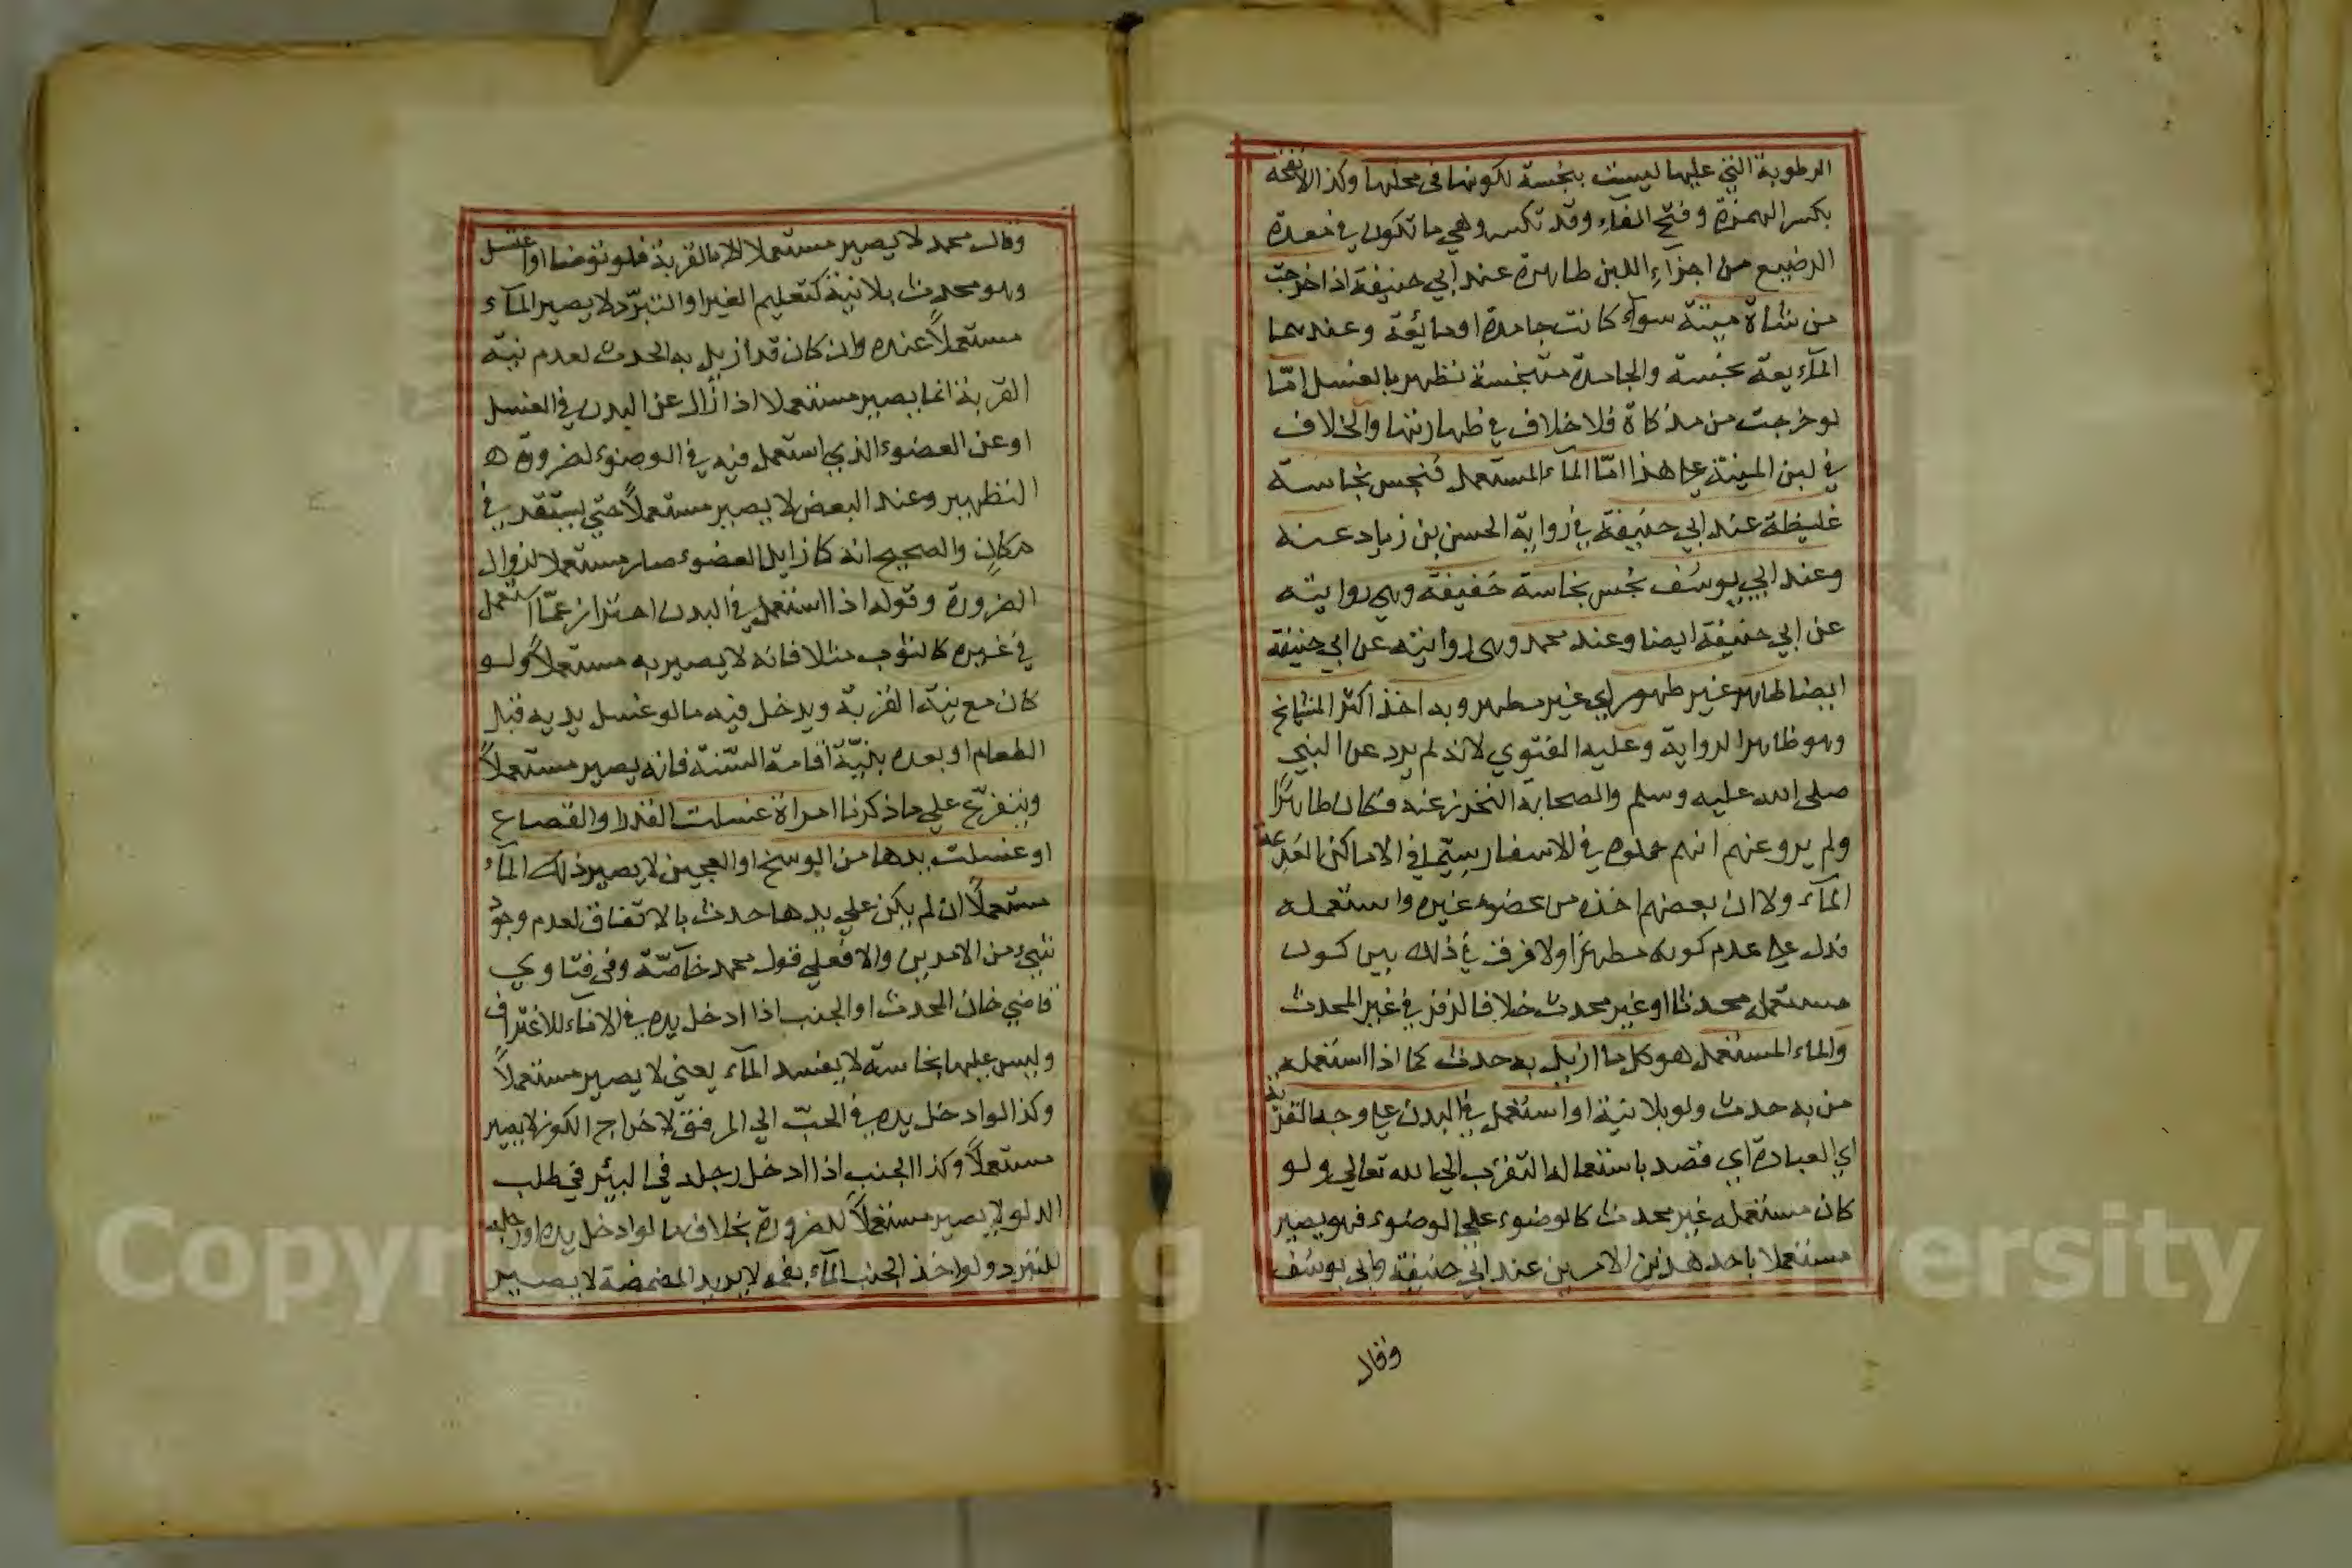 الرطوبة التي عليها ليست بنجسة لكونها في محلها وكذا الانفحة
بكسر الهمزة وفتح الفآء وقد تكسر وهي ما تكون في معدة
الرضيع من اجزآء اللبن طاهرة عند ابي حنيفة اذا خرجت
من شاة ميتة سوآء كانت جامدة او مائعة وعندهما
المآئعة نجسة والجامدة متنجسة تطهر بالغسل امّا
لو خرجت من مذكاة فلا خلاف في طهارتها والخلاف
في لبن الميتة على هذا امّا المآء المستعمل فنجس نجاسة
غليظة عند ابي حنيفة في رواية الحسن بن زياد عنه
وعند ابي يوسف نجس نجاسة خفيفة وهي روايته
عن ابي حنيفة ايضا وعند محمد وهي روايته عن ابي حنيفة
ايضا طاهر غير طهور اي غير مطهر وبه اخذ اكثر المشايخ
وهو ظاهر الرواية وعليه الفتوي لانه لم يرد عن النبي
صلى الله عليه وسلم والصحابة التحرز عنه فكان طاهرًا
ولم يرو عنهم انهم حملوه في الاسفار سيّما في الاماكن العدعة
المآء ولا ان بعضهم اخذه من عضوء غيره واستعمله
فدل على عدم كونه مطهرًا ولا فرق في ذلك بين كون
مستعمله محدثا او غير محدث خلافا لزفر في غير المحدث
والماء المستعمل هو كل ما ازيل به حدث كما اذا استعمله
من به حدث ولو بلا نية او استعمل في البدن على وجه القربة
اي العبادة اي قصد باستعماله التقرب الي الله تعالي ولو
كان مستعمله غير محدث كالوضوء علي الوضوء فهو يصير
مستعملا باحد هذين الامرين عند ابي حنيفة وابي يوسف
وقال
وقال محمد لا يصير مستعملا الا بالقربة فلو توضا او اغتسل
وهو محدث بلا نية كتعليم الغير او التبرّد لا يصير المآء
مستعملاً عنده وان كان قد ازيل به الحدث لعدم نية
القربة انما يصير مستعملا اذا زال عن البدن في الغسل
او عن العضوء الذي استعمل فيه في الوضوء لضرورة
التطهير وعند البعض لا يصير مستعملاً حتي يستقر في
مكان والصحيح انه كما زايل العضوء صار مستعملا لزوال
الضرورة وقوله اذا استعمل في البدن احتراز عمّا استعمل
في غيره كالثوب مثلا فانه لا يصير به مستعملاً ولو
كان مع نية القربة ويدخل فيه ما لو غسل يديه قبل
الطعام او بعده بنيّة اقامة السّنة فانه يصير مستعملاً
ويتفرّع علي ما ذكرنا امراة غسلت القدر او القصاع
او غسلت يدها من الوسخ او العجين لا يصير ذلك المآء
مستعملاً ان لم يكن علي يدها حدث بالاتفاق لعدم وجود
شيء من الامرين والا فعلي قول محمد خآصّة وفي فتاوي
قاضي خان المحدث او الجنب اذا ادخل يده في الانآء للاغتراف
وليس عليها نجاسة لا يفسد المآء يعني لا يصير مستعملاً
وكذا لو ادخل يده في الحبّ الي المرفق لاخراج الكوز لا يصير
مستعملاً وكذا الجنب اذا ادخل رجله في البئر في طلب
الدلو لا يصير مستعملاً للضرورة بخلاف ما لو ادخل يده او رجله
للتبرد ولو اخذ الجنب المآء بفمه لا يريد المضمضة لا يصير